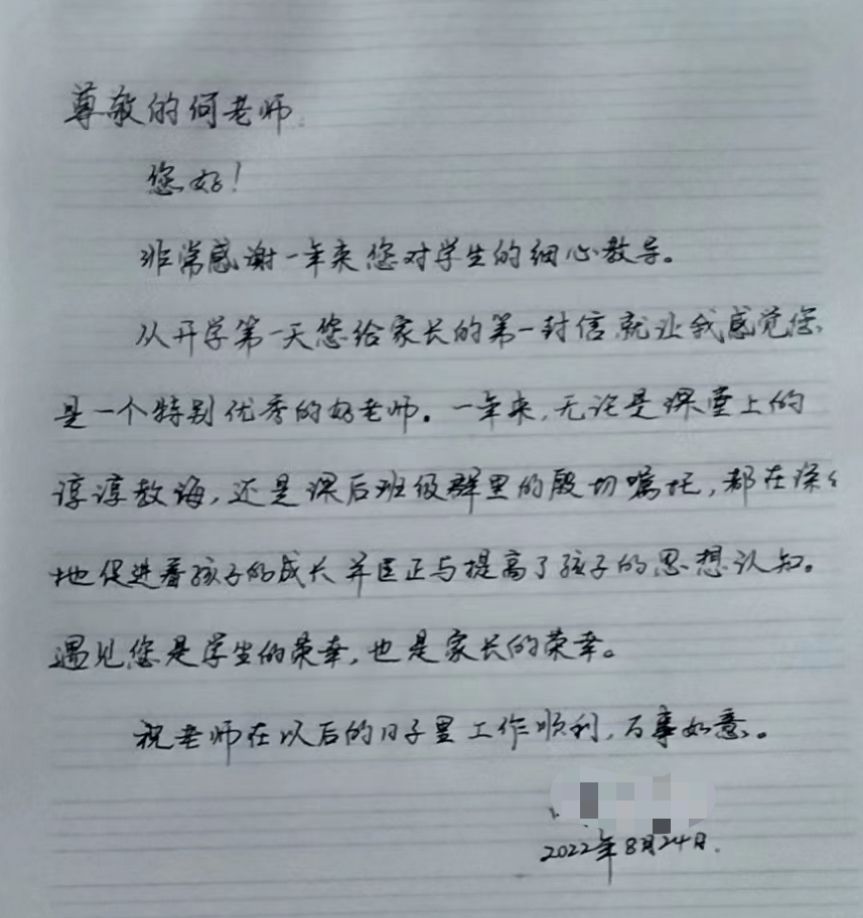 尊敬的何老师
您好！
非常感谢一年来您对学生的细心教导。
从开学第一天您给家长的第一封信,就让我感觉您
是一个特别优秀的好老师。一年来,无论是课堂上的
谆谆教诲,还是课后班级群里的殷切嘱托,都在深々
地促进着孩子的成长并匡正与提高了孩子的思想认知。
遇见您是学生的荣幸,也是家长的荣幸。
祝老师在以后的日子里工作顺利,万事如意。
2022年8月24日.